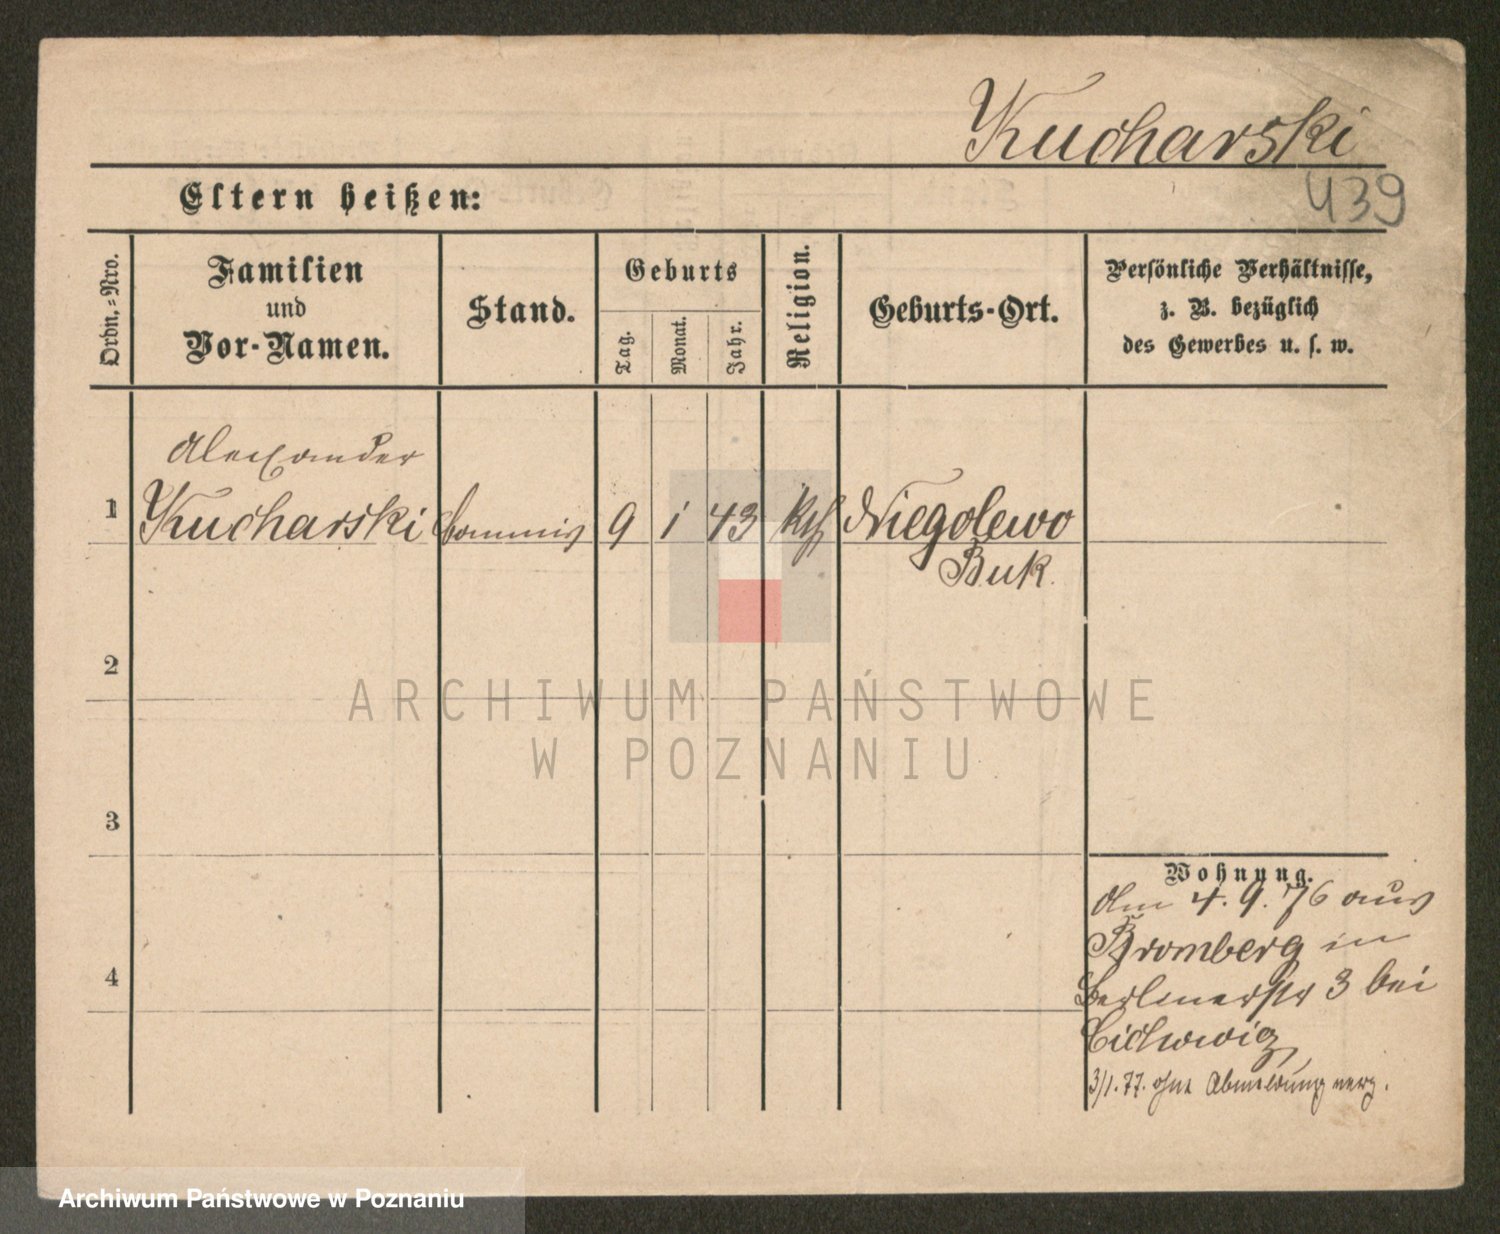 Kucharski
439
Eltern heißen:
Ordn.-Nro.
Familien
und
Vor-Namen.
Stand.
Geburts
Tag.
Monat.
Jahr.
Religion.
Geburts-Ort.
Persönliche Verhältnisse,
z. B. bezüglich
des Gewerbes u. s. w.
Alexander
1 Kucharski Commis 9 1 43 Kth Niegolewo
Buk.
2
3
4
ARCHIWUM PAŃSTWOWE
W POZNANIU
Wohnung.
Am 4.9.76 aus
Bromberg in
Berlinerstr 3 bei
3/1.77. ohne Abmeldung verz.
Archiwum Państwowe w Poznaniu